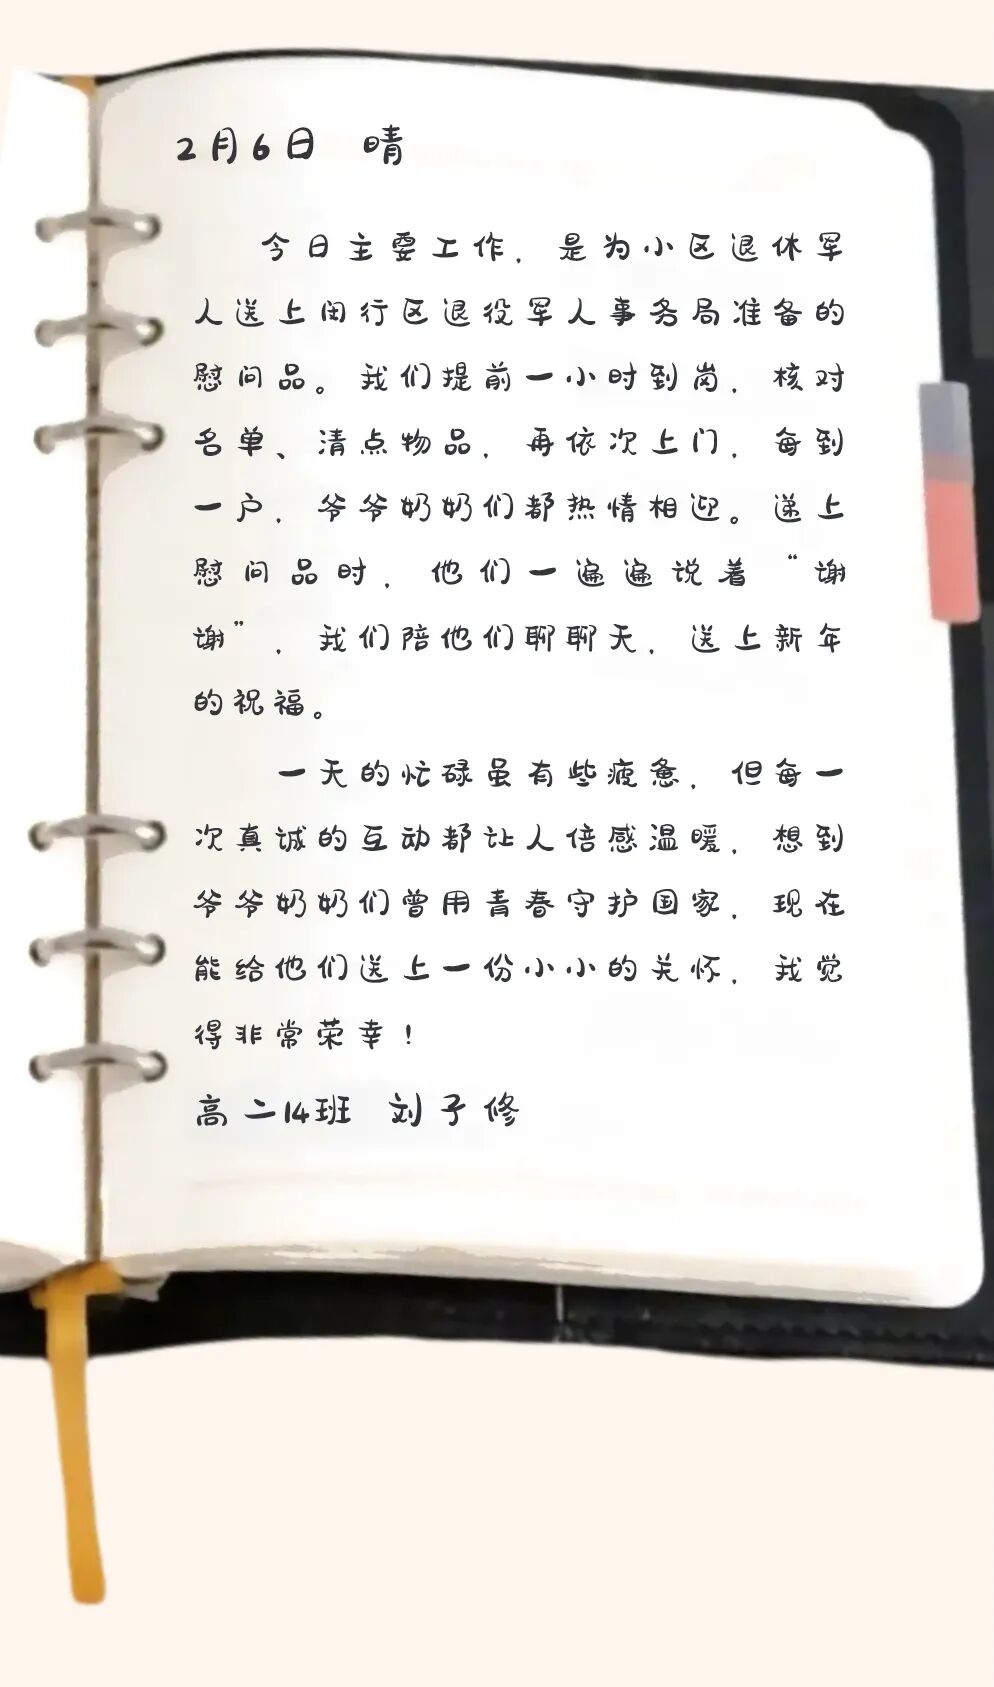 2月6日 晴
今日主要工作，是为小区退休军
人送上闵行区退役军人事务局准备的
慰问品。我们提前一小时到岗，核对
名单、清点物品，再依次上门，每到
一户，爷爷奶奶们都热情相迎。递上
慰问品时，他们一遍遍说着“谢
谢”，我们陪他们聊聊天，送上新年
的祝福。
一天的忙碌虽有些疲惫，但每一
次真诚的互动都让人倍感温暖，想到
爷爷奶奶们曾用青春守护国家，现在
能给他们送上一份小小的关怀，我觉
得非常荣幸！
高二14班 刘子修